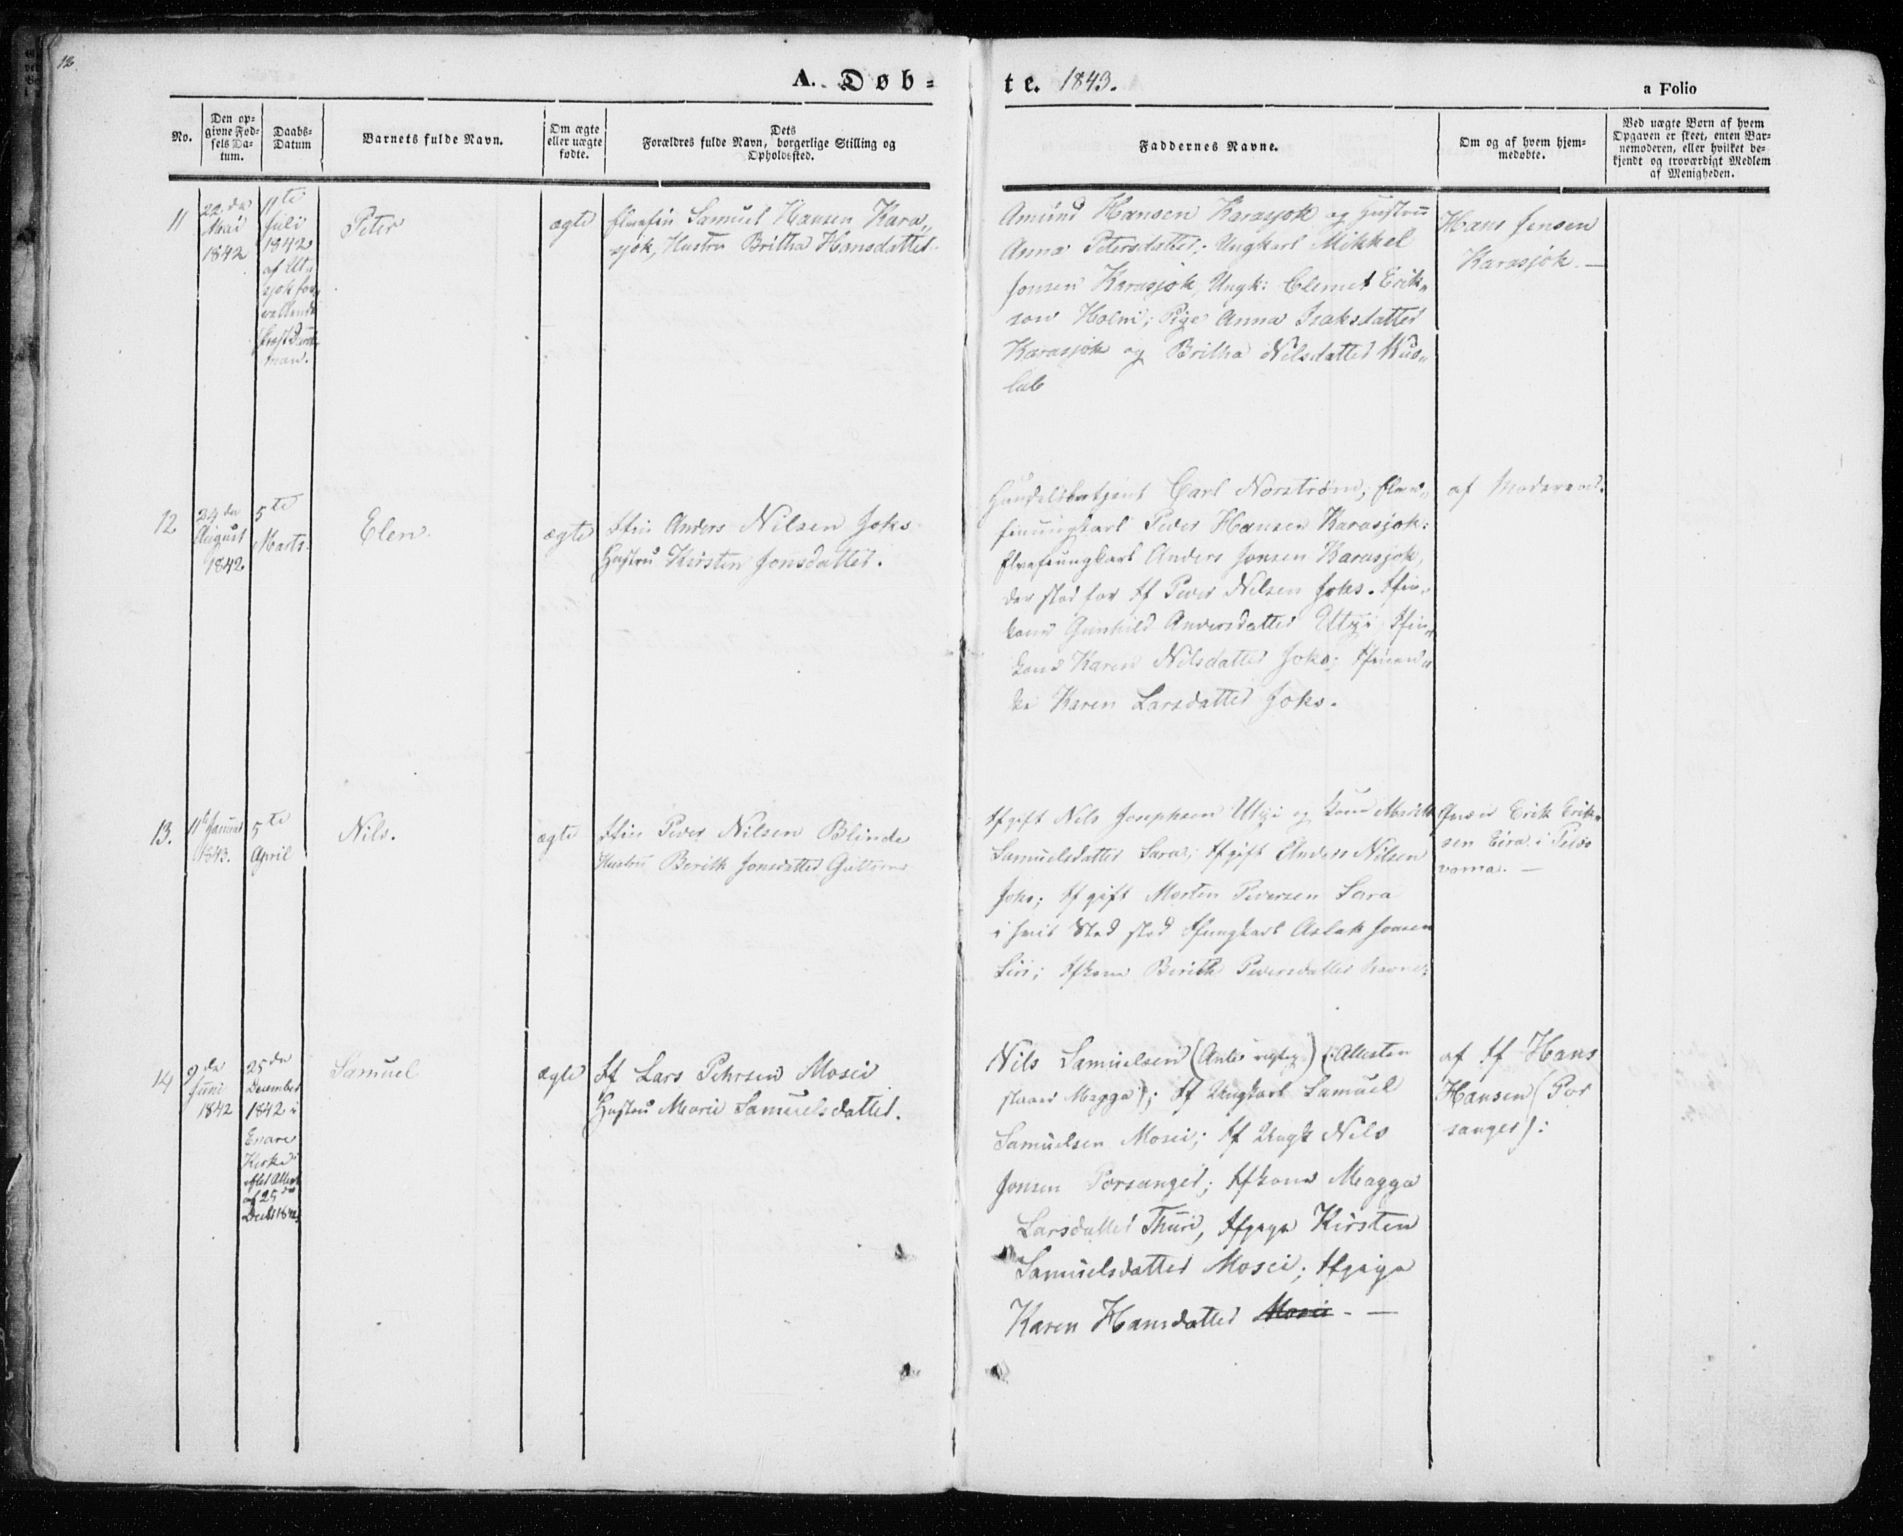 18.
A. Døb-
te. 1843.
a Folio
No.
Den op-
givne Fød-
sels Da-
tum.
Daabs-
Datum
Barnets fulde Navn.
Om ægte
eller uægte
fødte.
Dets
Forældres fulde Navn, borgerlige Stilling og
Opholdssted.
Faddernes Navne.
Om og af hvem hjem-
medøbte.
Ved uægte Børn af hvem
Opgaven er skeet, enten Bar-
nemoderen, eller hvilket be-
kjendt og troværdigt Medlem
af Menigheden.
11
22de
Mai
1842
11te
Juli
1842
af Ut-
sjok for-
Peter
ægte
Elvefin Samuel Hansen Kara-
sjok, Hustru Britha Hansdatter.
Amund Hansen Karasjok og Hustru
Anna Petersdatter; Ungkarl Mikkel
Jonsen Karasjok, Ungk: Clemet Erik-
son Holm; Pige Anna Isaksdatter
Karasjok og Britha Nilsdatter
Hans Jensen
Karasjok. —
12
24de
August
1842
5te
Marts.
Elen.
ægte
Anders Nilsen Joks
Hustru Kirsten Jonsdatter.
Handelsbetjent Carl Norstrøm; Elve-
finungkarl Peder Hansen Karasjok:
Elvefinungkarl Anders Jonsen Karasjok,
der stod for Peder Nilsen Joks.
kone Gunhild Andersdatter Utsi
kone Karen Nilsdatter Joks;
Karen Larsdatter Joks.
af Moderen
13.
11te Januar
1843.
5te
April
Nils.
ægte
Peder Nilsen Blinde
Hustru Berith Jonsdatter Guttorm
gift Nils Josephsen Utsi og Kone
Samuelsdatter Sara; gift Anders Nilsen
Joks; gift Morten Pedersen Sara
i hvis Sted stod Aslak Jonsen
Berith Pedersdatter
Erik Erik-
sen Eira i
14
9de
Juni
1842
25de
December
1842 i
Enare
Kirke
af 25de
Decbr 1842
Samuel
ægte
Lars Pehrsen Mosei
Hustru Marie Samuelsdatter.
Nils Samuelsen (Attesten
Magga); Ungkarl Samuel
Samuelsen Mosei; Ungk Nils
Jonsen Porsanger; kone Magga
Larsdatter Thuri, Kirsten
Samuelsdatter Mosei;
Karen Hansdatter Mosei. —
af Hans
Hansen (Por
sanger):